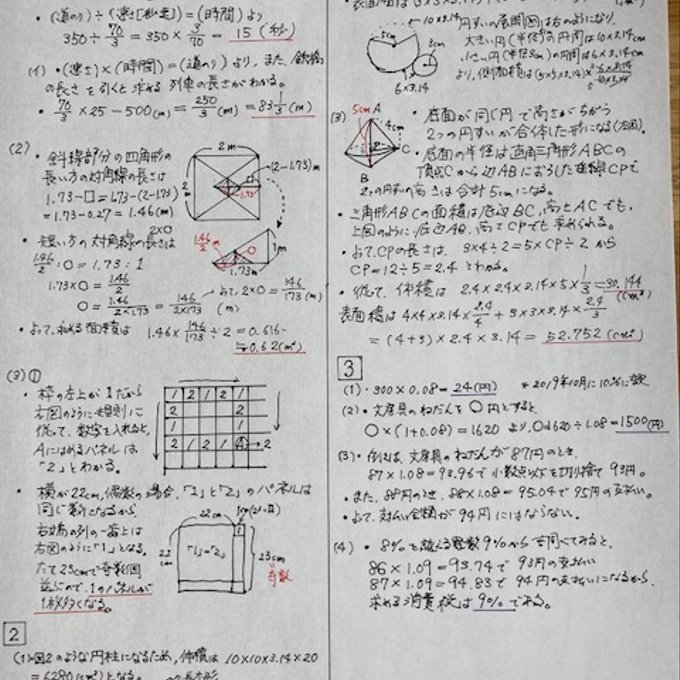 (道のり)÷(速さ[秒速])=(時間)より
350÷70/3=350×3/70=15(秒)
(イ)・(速さ)×(時間)=(道のり)より、また、鉄橋
の長さを引くと求める列車の長さがわかる。
・70/3×25-500(m)=250/3(m)=83 1/3(m)
(2)・斜線部分の四角形の
長い方の対角線の長さは
1.73-□=1.73-(2-1.73)
=1.73-0.27=1.46(m)
2m
2m
(2-1.73)m
1.73
・短い方の対角線の長さは
2×○
1.46/2:○=1.73:1
1.73×○=1.46/2
○=1.46/2×1.73=146/173(m)
よって、2×○=146/173(m)
1.46/2m
○
1m
1.73m
・よって、求める面積は 1.46×146/173÷2=0.616…
≒0.62(m²)
(3)①
・枠の左上が1だから
右図のように規則に
従って、数字を入れると、
Aにはめるパネルは
「2」とわかる。
1 2 1 2 1
2 2
1 1
2 1 2 1 A→2
・横が22cm、偶数の場合、「1」と「2」のパネルは
同じ数になるから、
右端の列の一番上は
右図のように「1」となる。
たて23cmで奇数個
並ぶので、1のパネルが
1枚多くなる。
22cm
22cm
1
「1」=「2」
23cm
奇数
2
(1)・図2のような円柱になるため、体積は 10×10×3.14×20
=6280(cm³)となる。
10×3.14
3cm
6×3.14
円すいの展開図は右のようになり、
大きい円(半径5cm)の円周は10×3.14
小さい円(半径3cm)の円周は6×3.14
より、側面積は(5×5×3.14)×6×3.14/10×3.14
(3)
5cm
A
4cm
C
P
B
・底面が同じ円で高さがちがう
2つの円すいが合体した形になる(左図)。
・底面の半径は直角三角形ABCの
頂点Cから辺ABにおろした垂線CPで
2つの円すいの高さは合計5cmになる。
・三角形ABCの面積は底辺BC、高さACでも、
上図のように底辺AB、高さCPでも求められる。
・よって、CPの長さは、3×4÷2=5×CP÷2から
CP=12÷5=2.4とわかる。
・従って、体積は 2.4×2.4×3.14×5×1/3=30.144(cm³)
表面積は4×4×3.14×2.4/4+3×3×3.14×2.4/3
=(4+3)×2.4×3.14=52.752(cm²)
3
(1)・300×0.08=24(円) *2019年10月に10%に
(2)・文房具のねだんを○円とすると、
○×(1+0.08)=1620より、○=1620÷1.08=1500(円)
(3)・例えば、文房具のねだんが87円のとき、
87×1.08=93.96で小数点以下を切り捨て93円。
・また、88円のとき、88×1.08=95.04で95円の支払い。
・よって、支払い金額が94円にはならない。
(4)・8%を越える整数9%から調べてみると、
86×1.09=93.74で93円の支払い
87×1.09=94.83で94円の支払いになるから、
求める消費税は9%である。